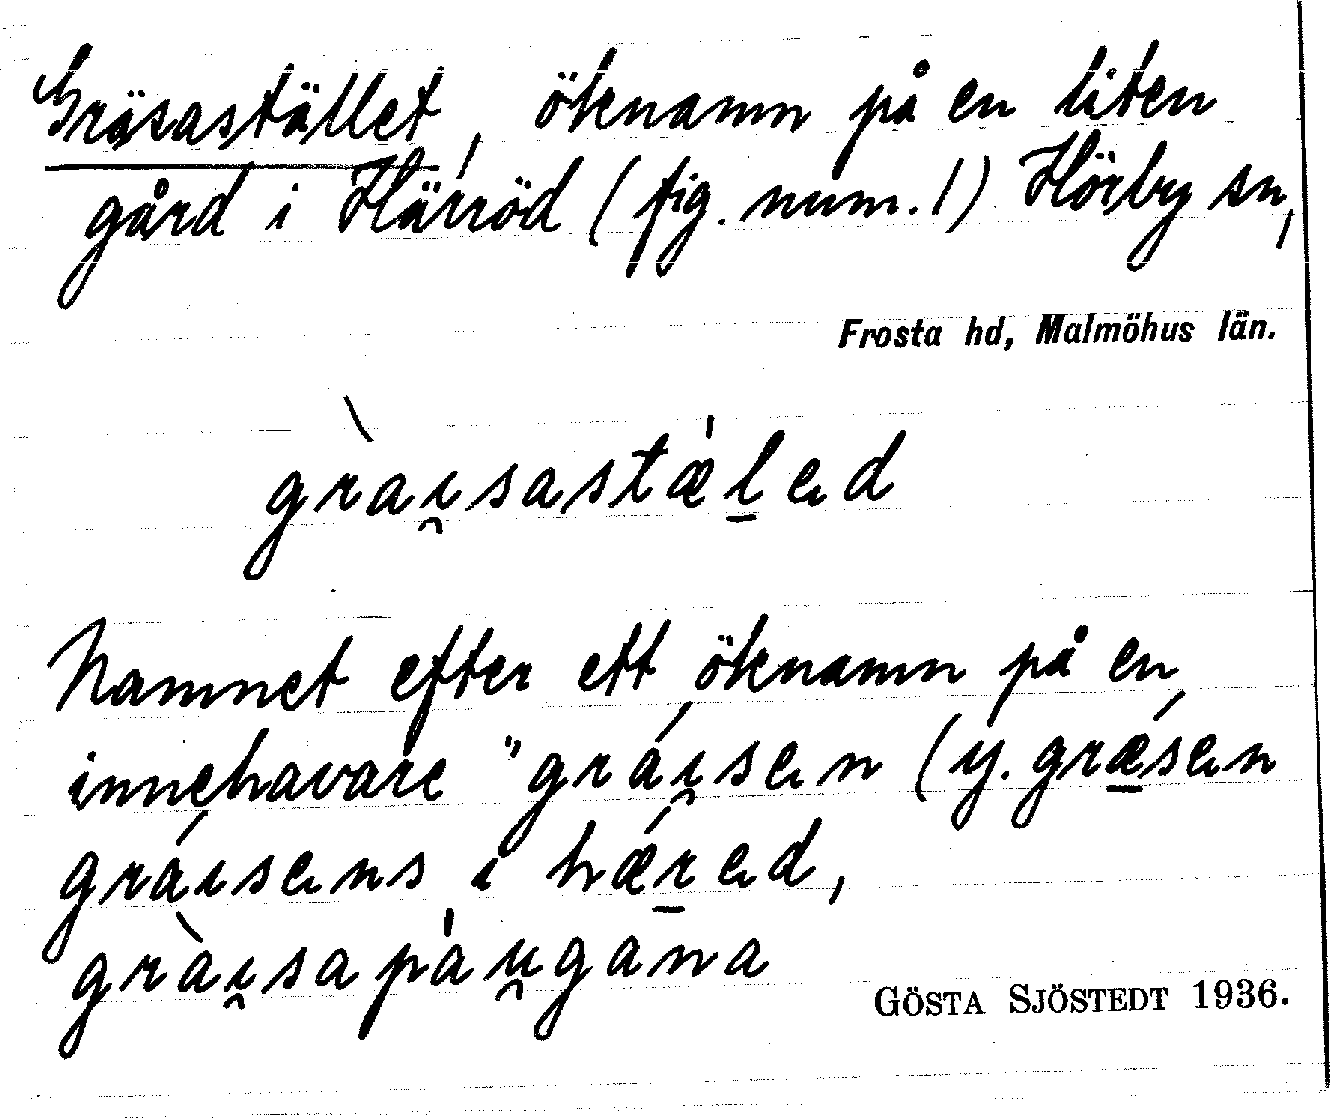 Gräsastället, öknamn på en liten
gård i Härröd (fig. num. 1) Hörby sn,
Frosta hd, Malmöhus län.
gràı̯sastæ̍l̲əd
Namnet efter ett öknamn på en
innehavare "gráı̯sən (y. grǽ̲sən
gráısəns i hǽr̲əd,
gràı̯sapa̍u̯gana
GÖSTA SJÖSTEDT 1936.